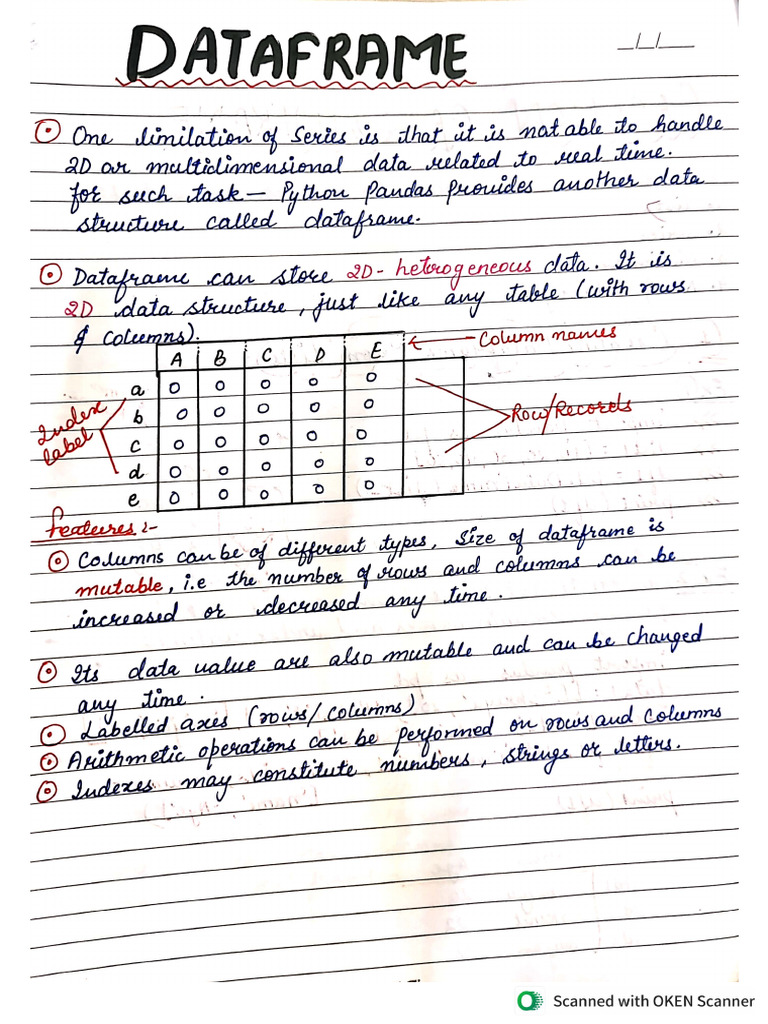 DATAFRAME
_/_/__
One limilation of Series is that it is not able to handle
2D or multidimensional data related to real time.
for such task — Python Pandas provides another data
structure called dataframe.
Dataframe can store 2D- hetrogeneous data. It is
2D data structure, just like any table (with rows
& columns).
← Column names
A B C D E
a 0 0 0 0 0
b 0 0 0 0 0
c 0 0 0 0 0
d 0 0 0 0 0
e 0 0 0 0 0
Index
label
Row/Records
features :-
Columns can be of different types, Size of dataframe is
mutable, i.e the number of rows and columns can be
increased or decreased any time.
Its data value are also mutable and can be changed
any time.
Labelled axes (rows/columns)
Arithmetic operations can be performed on rows and columns
Indexes may constitute numbers, strings or letters.
Scanned with OKEN Scanner